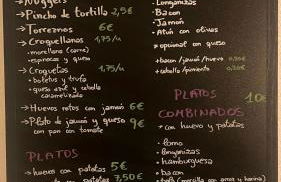 Nuggets
→ Pincho de tortilla 2,5€
→ Torreznos 6€
→ Croquellanas 1,75/u
- morcillana (carne)
- espinacas y queso
→ Croquetas 1,75/u
• boletus y trufa
• queso azul y cebolla caramelizada
→ Huevos rotos con jamón 6€
→ Plato de jamón y queso 9€
con pan con tomate
PLATOS
- huevos con patatas 5€
patatas 3,50€
- Longanizas
- Bacon
- Jamón
- Atún con olivas
* opcional con queso
+ bacon/jamón/huevo 0.50€
+ cebolla/pimiento 0.20€
PLATOS
COMBINADOS 10€
* con huevo y patatas
- lomo
- longanizas
- hamburguesa
- bacon